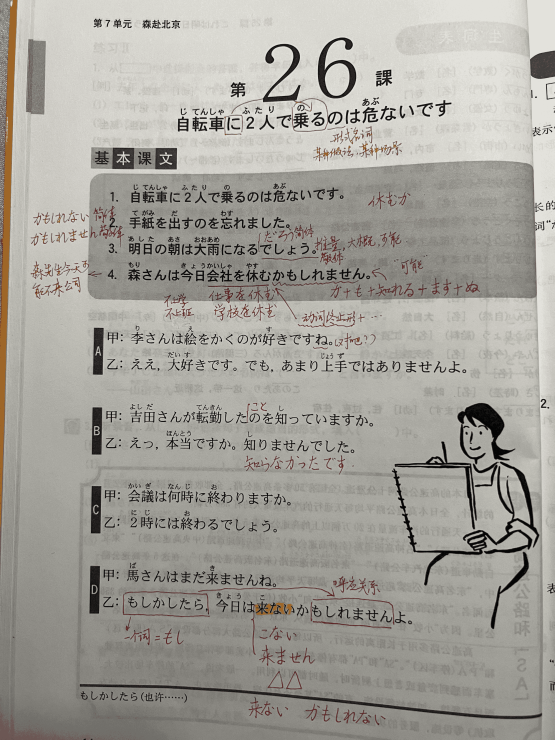 第7单元 森赴北京
第26課
自転車に2人で乗るのは危ないです
形式名词
某种做法,某种场景
基本课文
1. 自転車に2人で乗るのは危ないです。
休むか
2. 手紙を出すのを忘れました。
かもしれない 简体
かもしれません 敬体
3. 明日の朝は大雨になるでしょう。
4. 森さんは今日会社を休むかもしれません。
"可能"
仕事を休む
学校を休む
か+も+知れる+ます+ぬ
A
甲: 李さんは絵をかくのが好きですね。
乙: ええ,大好きです。でも,あまり上手ではありませんよ。
B
甲: 吉田さんが転勤したのを知っていますか。
こと
乙: えっ,本当ですか。知りませんでした。
知らなかったです
C
甲: 会議は何時に終わりますか。
乙: 2時には終わるでしょう。
D
甲: 馬さんはまだ来ませんね。
呼应关系
乙: もしかしたら,今日は来ないかもしれませんよ。
二词=もし
こない
来ません
△△
来ない かもしれない
もしかしたら(也许……)